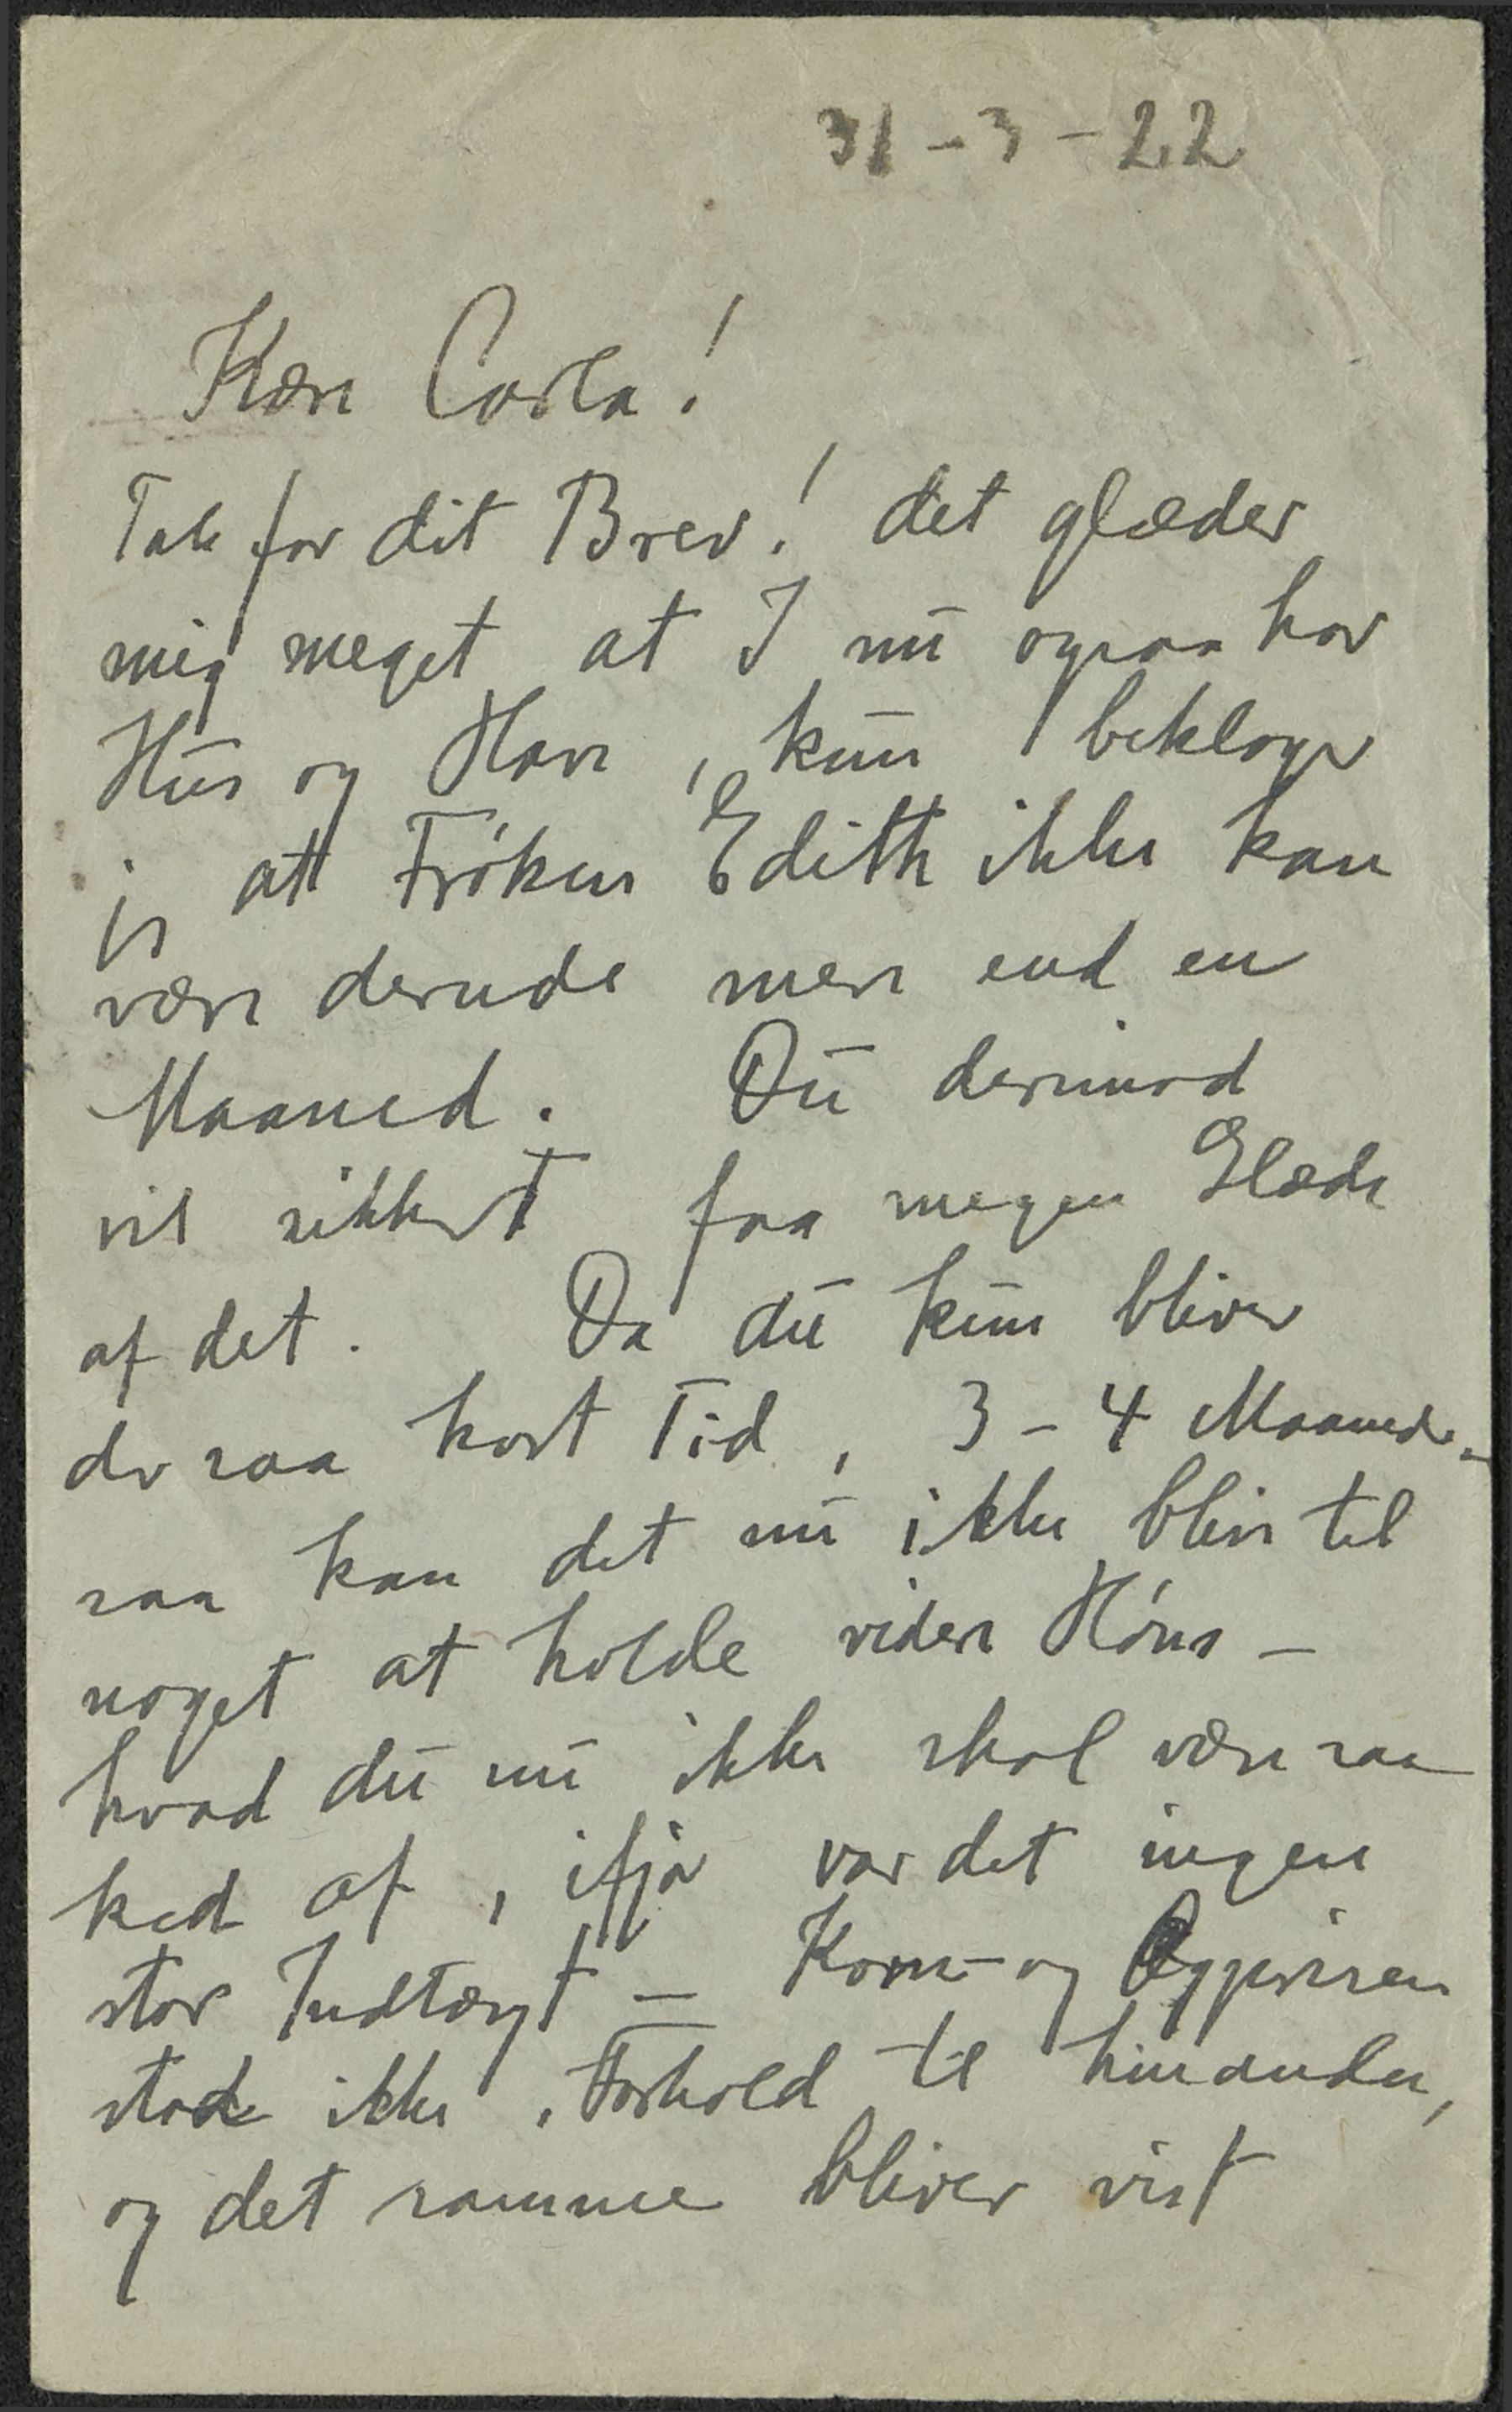 31-3-22
Kære Carla!
Tak for dit Brev! det glæder
mig meget at I nu ogsaa har
Hus og Have, kun beklager
jeg at Frøken Edith ikke kan
være derude mere end en
Maaned. Du derimod
vil sikkert faa megen Glæde
af det. Da du kun bliver
der saa kort Tid, 3-4 Maaneder
saa kan det nu ikke blive til
noget at holde videre Høns –
hvad du nu ikke skal være saa
ked af, ifjor var det ingen
stor Indtægt – Korn- og Ægprisen
stod ikke i Forhold til hinanden,
og det samme bliver vist